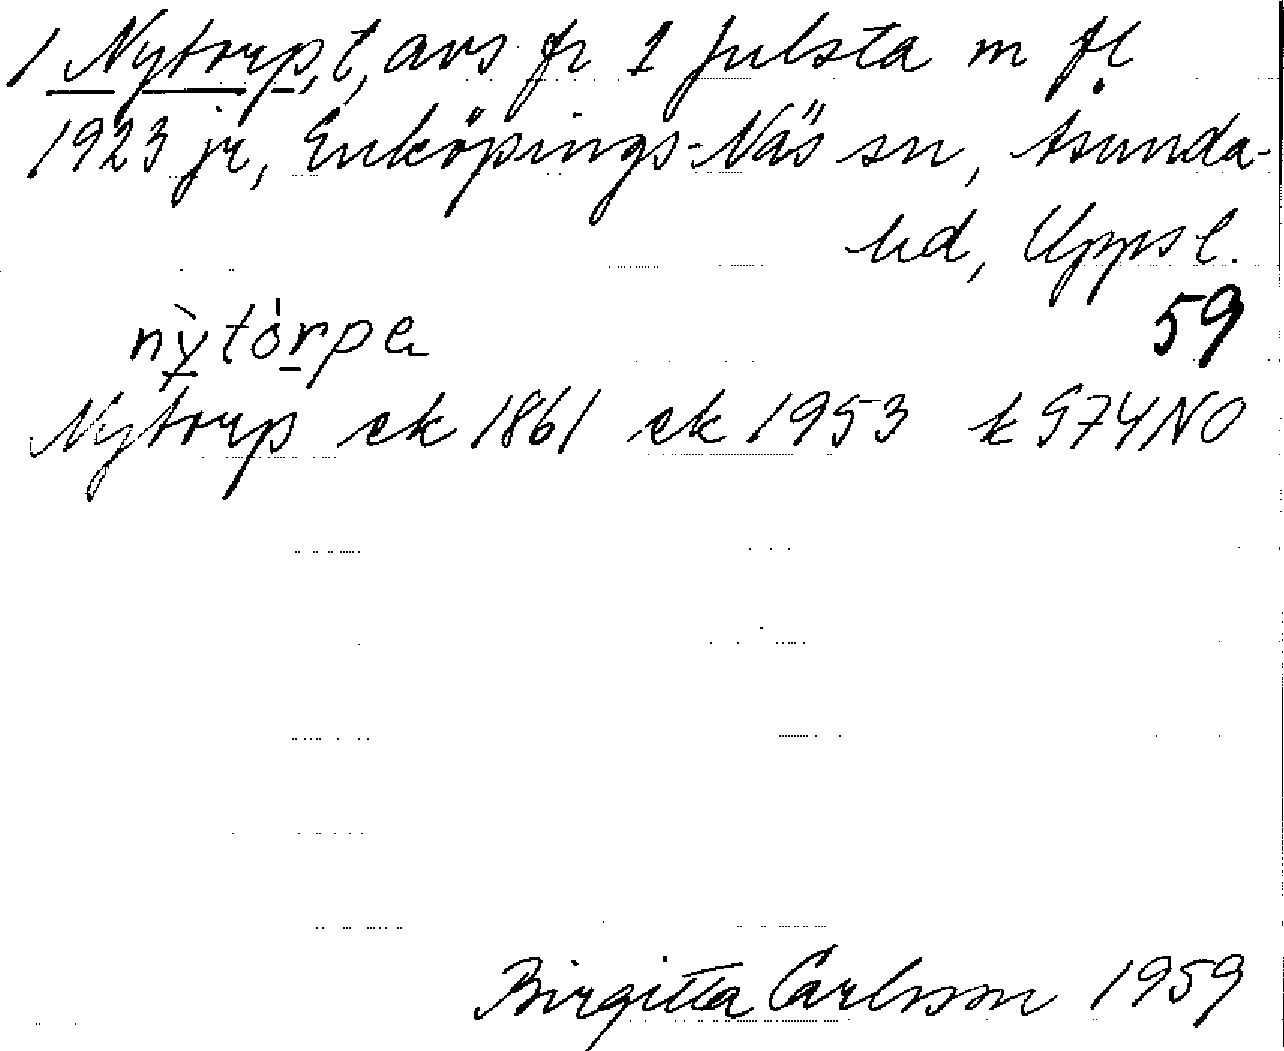 1 Nytorp, t, avs fr 1 Julsta m fl
1923 jr, Enköpings-Näs sn, Åsunda-
hd, Uppsl.
nỳtòrpa
59
Nytorp ek 1861 ek 1953 k 974NO
Birgitta Carlsson 1959